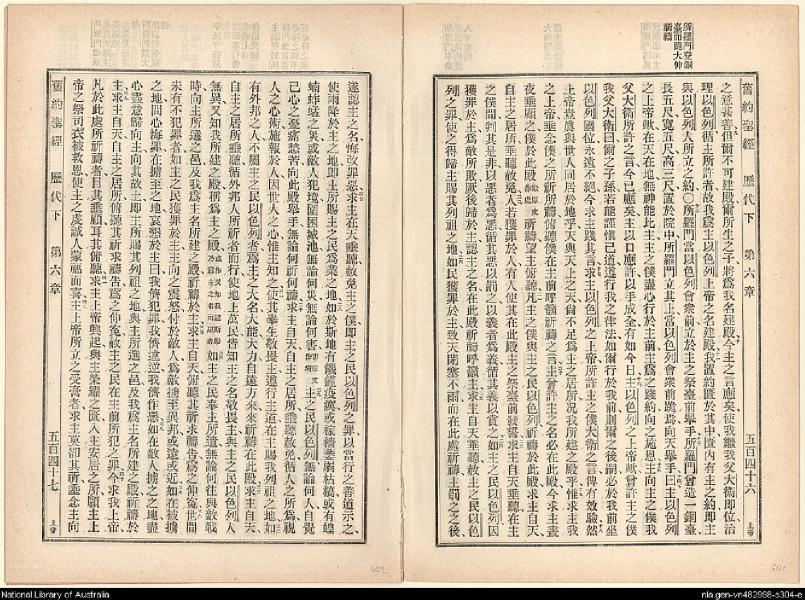 所羅門登銅
臺而跪大伸
舊約聖經 歷代下 第六章 五百四十六 上帝
之意甚善但爾不可建殿爾所生之子將爲我名建殿今主之言應矣使我繼我父大衛即位治
理以色列循主所許者故我爲主以色列上帝之名建殿我置約匱於其中匱內有主之約即主
與以色列人所立之約○所羅門當以色列會衆前立於主之祭臺前舉手所羅門曾造一銅臺
長五尺寬五尺高三尺置於院中所羅門立其上當以色列會衆前跪焉向天舉手曰主以色列
之上帝歟在天在地無神能比主主之僕盡心行於主前主爲之踐約向之施恩主向主之僕我
父大衛所許之言今已應矣主以口應許以手成全有如今日主以色列之上帝歟曾許主之僕
我父大衛曰爾之子孫若能謹愼己道遵行我之律法如爾行於我前則爾之後嗣必於我前坐
以色列國位永遠不絕今求主踐其言求主以色列之上帝所許主之僕大衛之言俾有效驗然
上帝豈眞與世人同居於地乎天與天上之天尚不足爲主之居所况我所建之殿乎惟求主我
之上帝垂念僕之所祈禱俯聽僕在主前呼籲祈禱之言主曾許主之名必在此殿今求主晝
夜垂顧之僕於此殿祈禱望主俯聽凡主之僕與主之民以色列祈禱於此殿求主自天
自主之居所垂聽赦免人若獲罪於人有人使其在此殿於主之祭臺前發誓求主自天垂聽在主
之僕間判其是非以惡者爲惡循其惡以罰之以義者爲義循其義以賞之如主之民以色
獲罪於主爲敵所敗厥後歸於主認主之名在此殿祈禱呼籲求主自天垂聽赦主之民以色
列之罪使之得歸主賜其列祖之地如民獲罪於主致天閉塞不雨而在此處祈禱主罰之之後
遂認主之名悔改罪惡求主在天垂聽赦免主之僕即主之民以色列之罪以當行之善道示之
使雨降於地即主所賜主之民爲業之地如於斯地有饑饉疫癘或稼穡萎弱枯槁或有蝗
蝻蚱蜢之災或敵人犯境圍困城池無論何災無論何害主之民以色列無論何人自覺
己心之憂痛愁苦向此殿舉手無論何祈何禱求主自天自主之居所垂聽赦免循人之所爲視
人之心術施報於人因世人之心惟主知之使其畢生敬畏主遵行主道在主賜我列祖之地如
有外邦之人不屬主之民以色列者爲主之大名大能大力自遠方來祈禱在此殿求主自天
自主之居所垂聽循外邦人所祈者而行使地上萬民皆知主之名敬畏主與主之民以色列人
無異又知我所建之殿稱爲主之殿如主之民奉主所遣無論何往與敵戰
時向主所選之邑及我爲主名所建之殿祈禱於主求主自天俯聽其祈求禱告爲之伸寃世間
未有不犯罪者如主之民獲罪於主主向之震怒付於敵人爲敵擄至異邦或遠或近如在被擄
之地間心悔罪在擄至之地哀懇於主曰我儕犯罪我儕違逆我儕作惡如在敵人擄之之地盡
心盡意歸向主向其故土即主所賜其列祖之地與主所選之邑及我爲主名所建之殿祈禱於
主求主自天自主之居所俯聽其祈求禱告爲之伸寃赦主之民在主前所犯之罪今求我上帝
凡於此處所祈禱者目其垂顧耳其俯聽求主上帝興起與主榮耀之匱入主安居之所願主上
帝之祭司衣被救恩使主之虔誠人蒙福而喜主上帝所立之受膏者求主莫卻其祈垂念主向
舊約聖經 歷代下 第六章 五百四十七 上帝
602
601
National Library of Australia
nla.gen-vn482998-s304-e